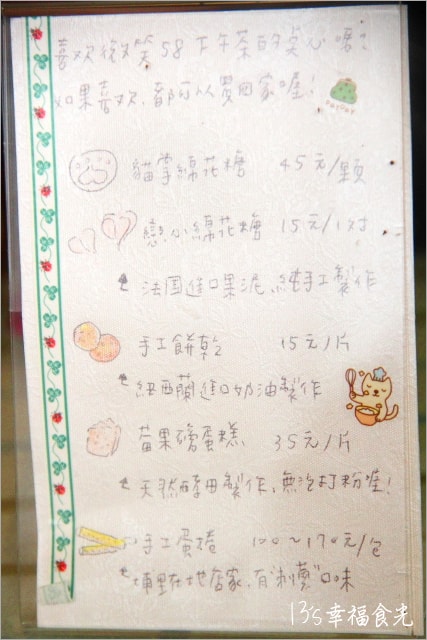 喜欢微笑58下午茶的点心嗎?
如果喜欢,都可以買回家喔!
貓掌綿花糖 45元/顆
戀心綿花糖 15元/1对
法国進口果泥、純手工製作
手工餅乾 15元/片
紐西蘭進口奶油製作
莓果磅蛋糕 35元/片
天然酵母製作,無泡打粉喔!
手工蛋捲 100~170元/包
埔里在地店家,有
口味
13's幸福食光